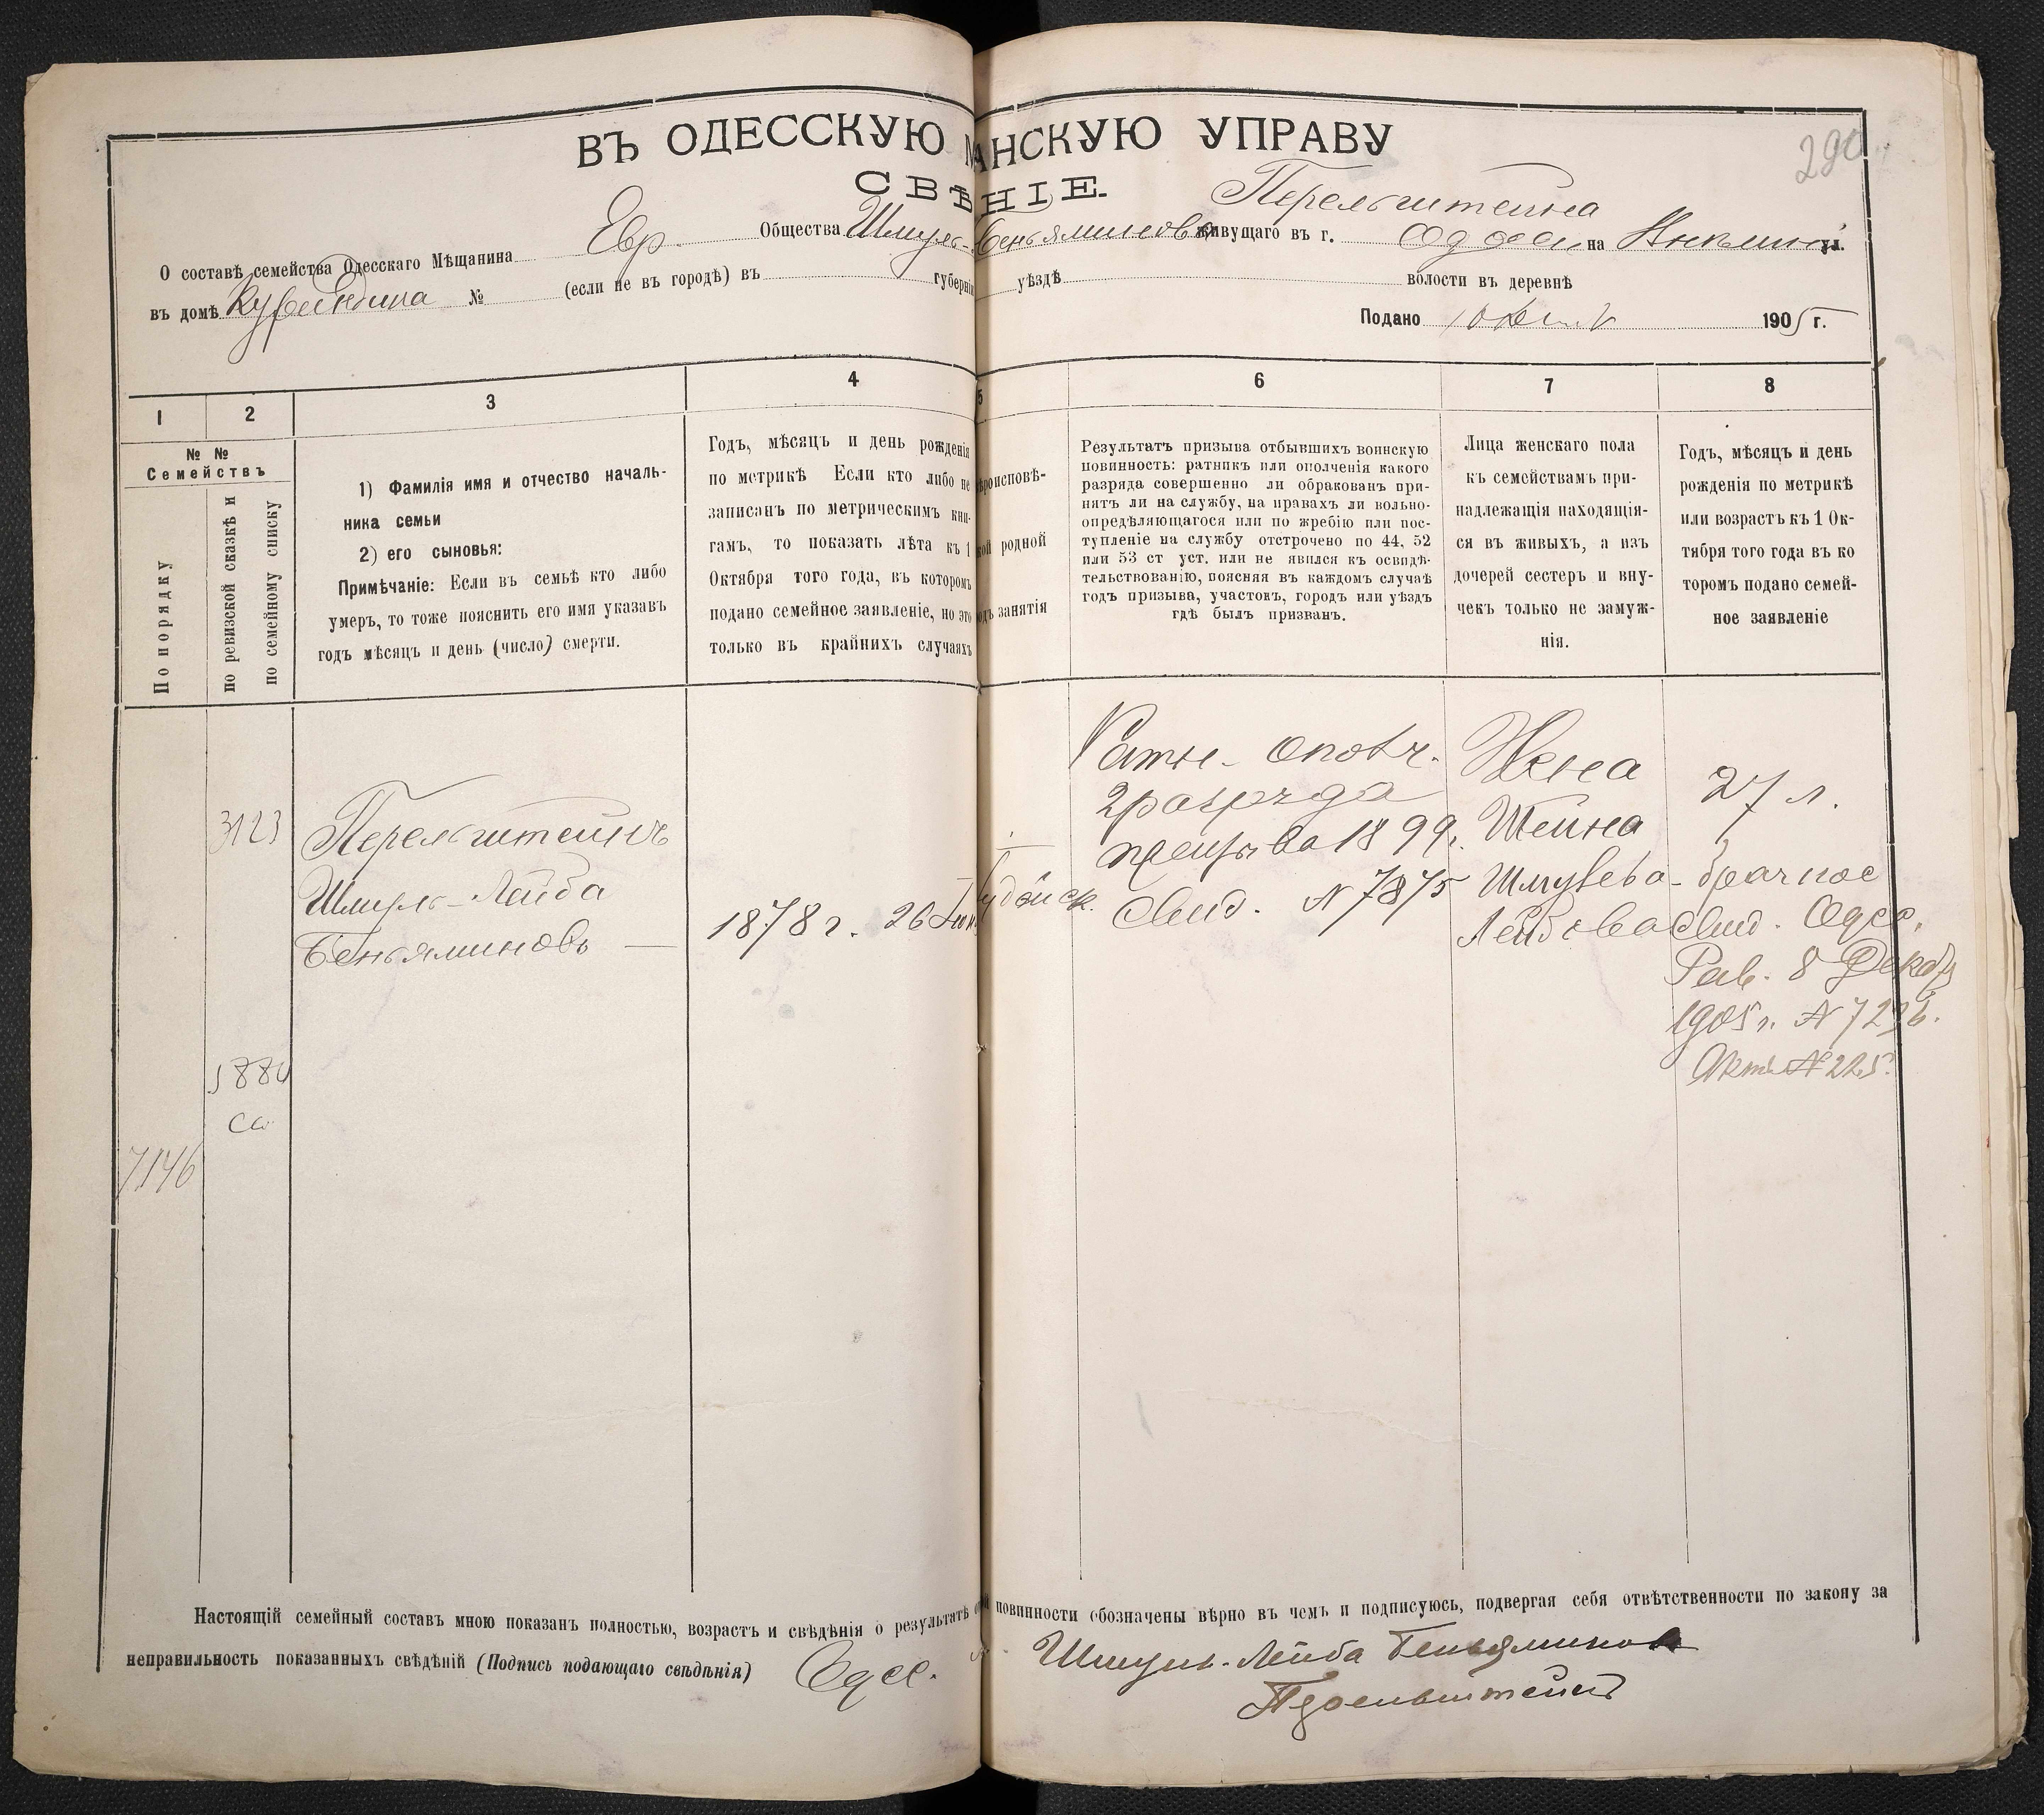 290
ВЪ ОДЕССКУЮ М АНСКУЮ УПРАВУ
СВѢ НІЕ.
Перельштейна
О составѣ семейства Одесскаго Мѣщанина Евр. Общества Шмуль- Беньяминова живущаго въ г. Одессѣ на ул.
въ домѣ № (если не въ городѣ) въ губерніи уѣздѣ волости въ деревнѣ
Подано 1905 г.
1 2 3 4 5 6 7 8
№ №
Семействъ
По порядку
по ревизской сказкѣ и
по семейному списку
1) Фамилія имя и отчество началь-
ника семьи
2) его сыновья:
Примѣчаніе: Если въ семьѣ кто либо
умеръ, то тоже пояснить его имя указавъ
годъ мѣсяцъ и день (число) смерти.
Годъ, мѣсяцъ и день рожденія
по метрикѣ Если кто либо не
записанъ по метрическимъ кни-
гамъ, то показать лѣта къ 1
Октября того года, въ которомъ
подано семейное заявленіе, но это
только въ крайнихъ случаяхъ
ѣроисповѣ-
кой родной
одъ занятія
Результатъ призыва отбывшихъ воинскую
повинность: ратникъ или ополченія какого
разряда совершенно ли обракованъ при-
нятъ ли на службу, на правахъ ли вольно-
опредѣляющагося или по жребію или пос-
тупленіе на службу отстрочено по 44, 52
или 53 ст уст. или не явился къ освидѣ-
тельствованію, поясняя въ каждомъ случаѣ
годъ призыва, участокъ, городъ или уѣздъ
гдѣ былъ призванъ.
Лица женскаго пола
къ семействамъ при-
надлежащія находящія-
ся въ живыхъ, а изъ
дочерей сестеръ и вну-
чекъ только не замуж-
нія.
Годъ, мѣсяцъ и день
рожденія по метрикѣ
или возрастъ къ 1 Ок-
тября того года въ ко
торомъ подано семей-
ное заявленіе
3123
Перельштейнъ
Шмуль-Лейба
Беньяминовъ
1878 г. 26
удейск.
Ратн. Ополч.
2 разряда
призыва 1899 г.
Свид. № 7875
Жена
Шейна
Шмулева-
Лейбова
27 л.
брачное
Свид. Одес.
Рав. 8 Декаб
1905 г. № 7296.
Актъ № 225
7146
Настоящій семейный составъ мною показанъ полностью, возрастъ и свѣдѣнія о результатѣ от й повинности обозначены вѣрно въ чемъ и подписуюсь, подвергая себя отвѣтственности по закону за
неправильность показанныхъ свѣдѣній (Подпись подающаго свѣдѣнія) Одес. Шмуль-Лейба Беньяминов
Перельштейнъ